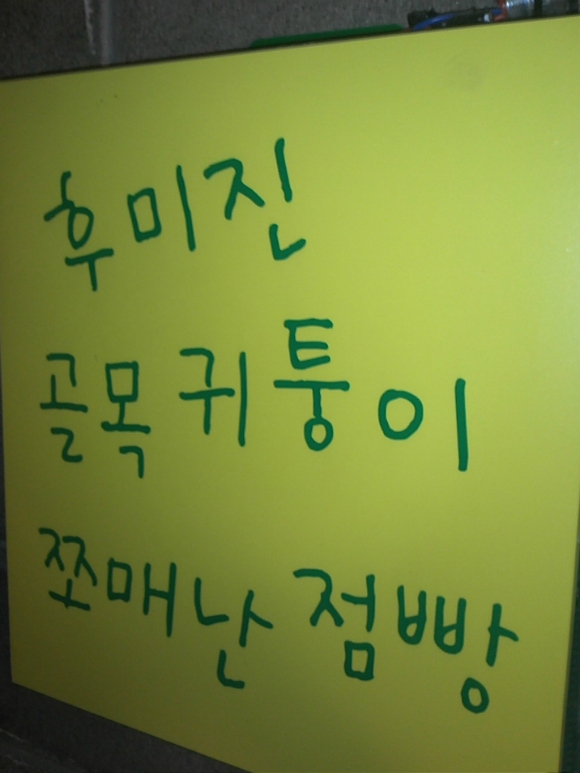 후미진
골목 귀퉁이
쪼매난 점빵